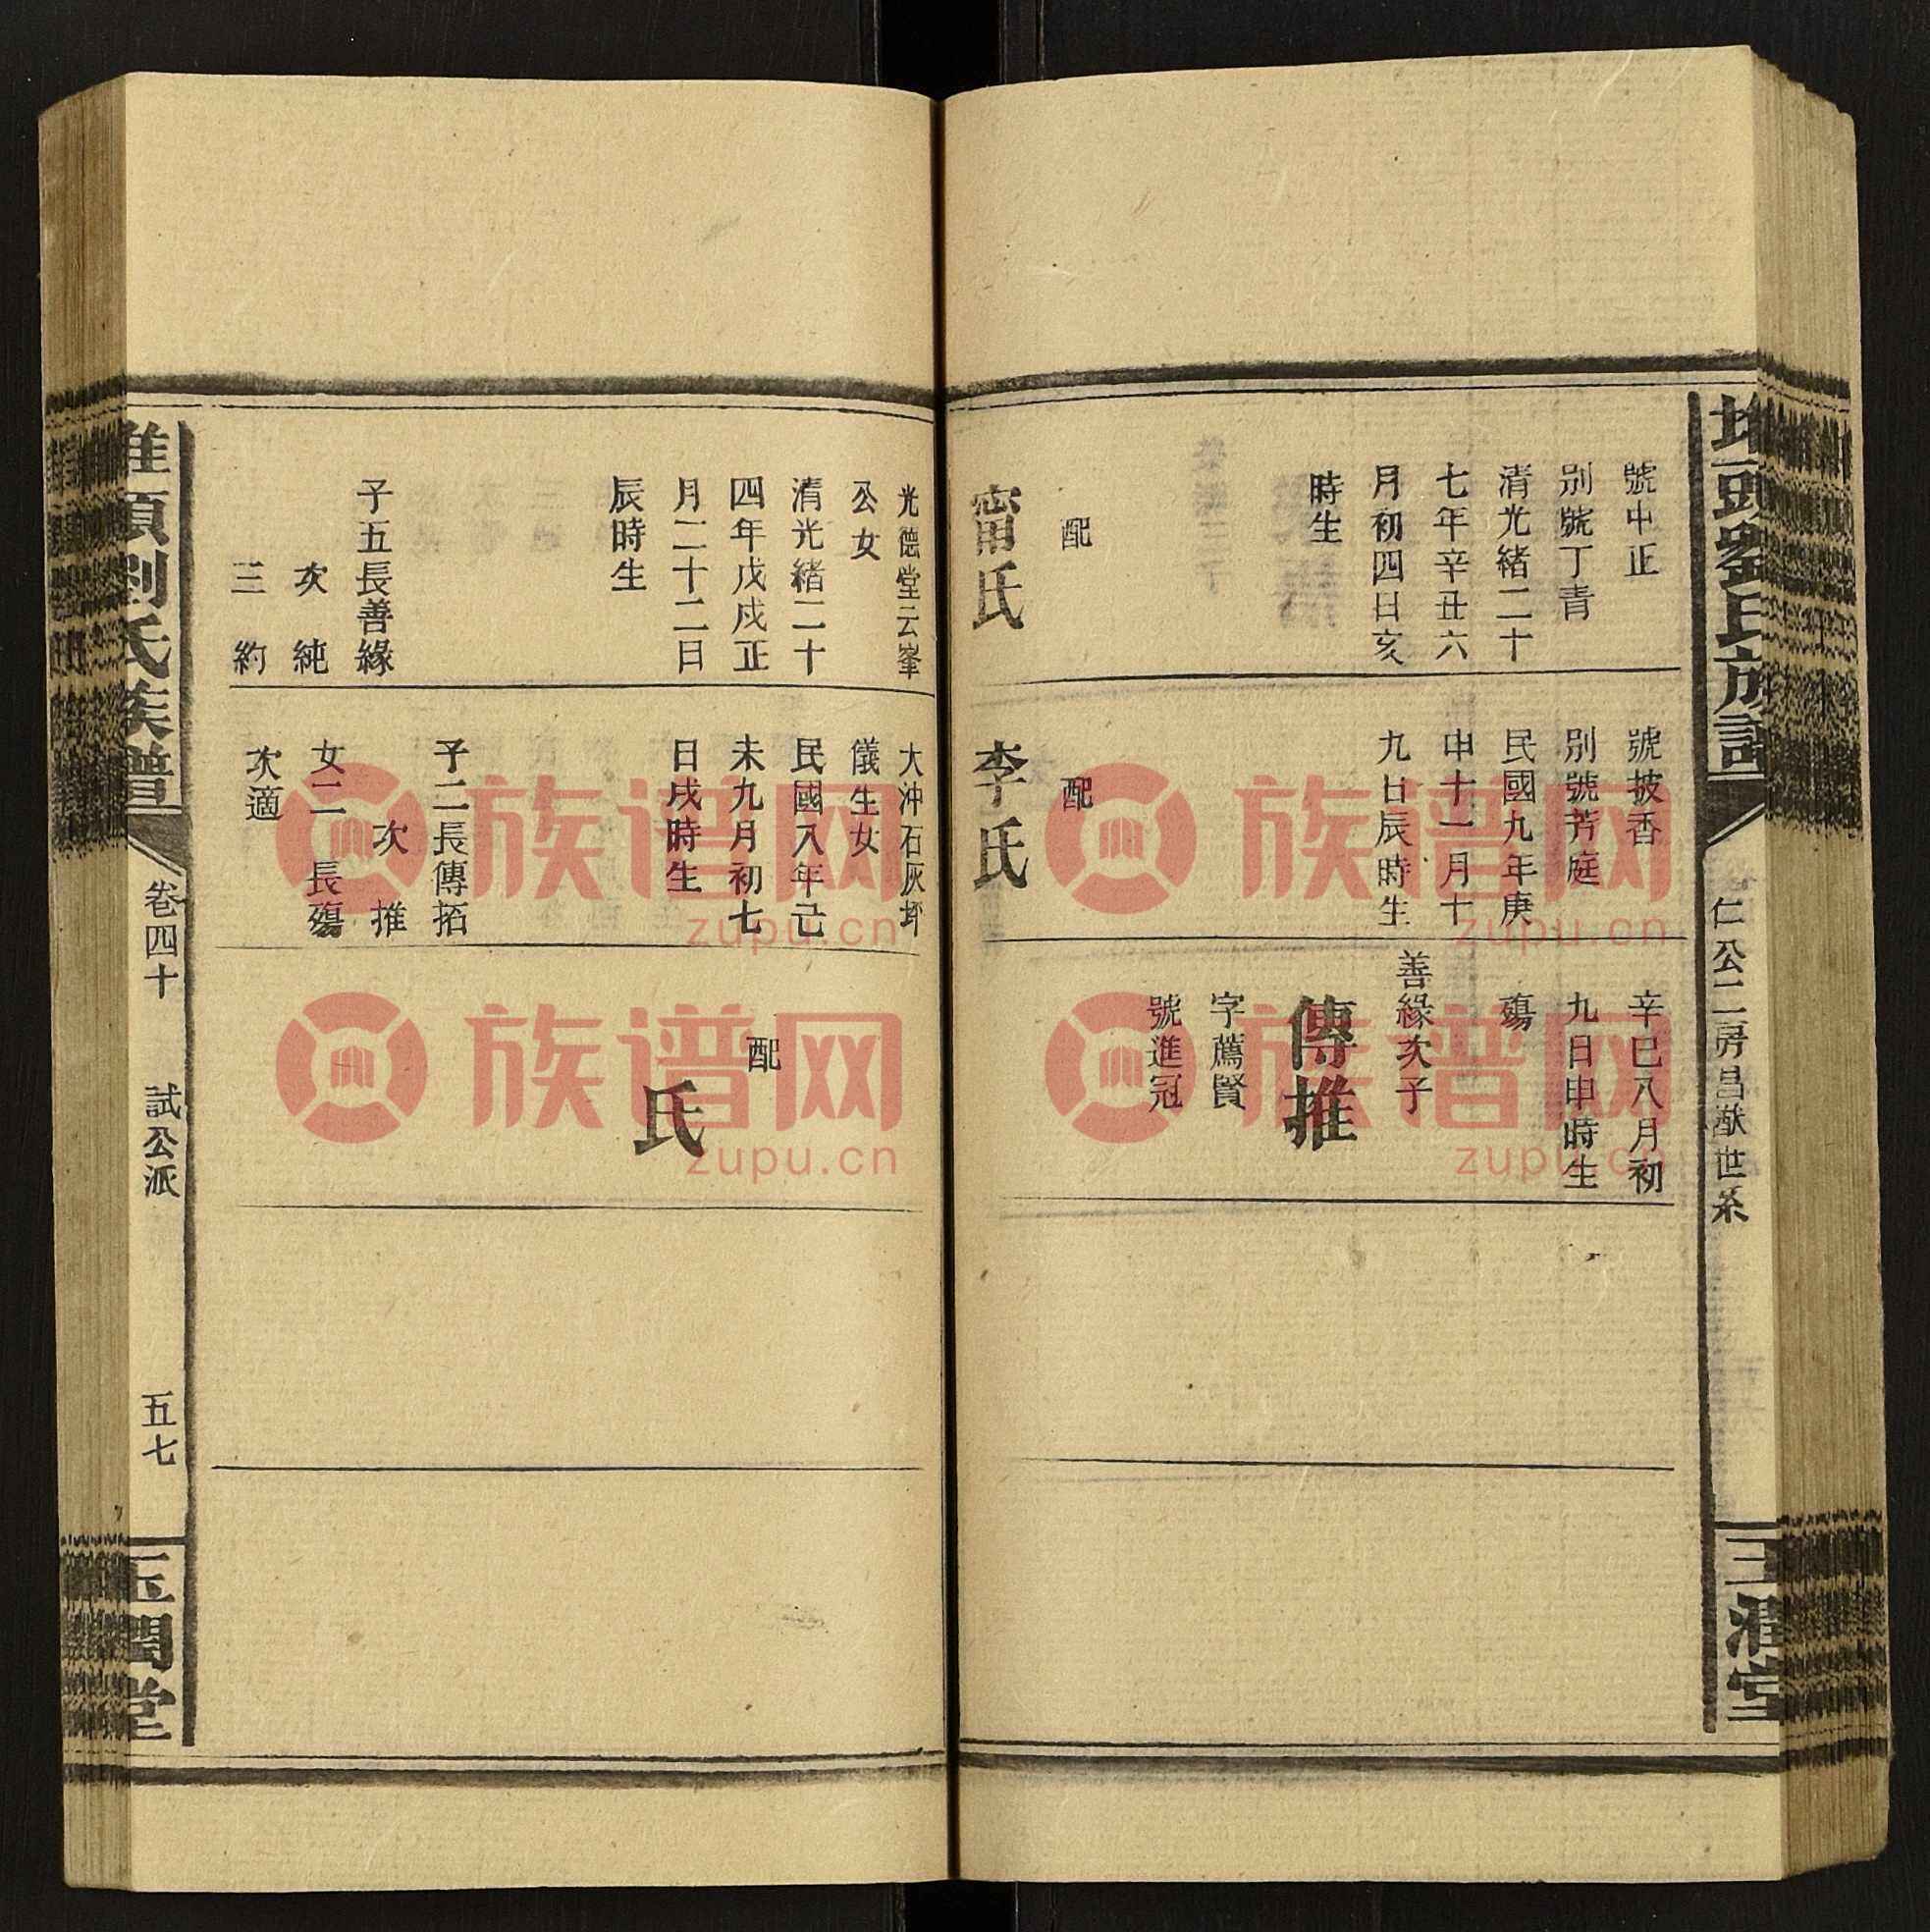 堆頭劉氏族譜
仁公二房昌猷世系
玉潤堂
號中正
別號丁青
清光緒二十
七年辛丑六
月初四日亥
時生
配
甯氏
號披香
別號芳庭
民國九年庚
申十一月十
九日辰時生
配
李氏
辛巳八月初
九日申時生
殤
善緣次子
傳推
字薦賢
號進冠
光德堂云峯
公女
清光緒二十
四年戊戌正
月二十二日
辰時生
子五長善緣
次 純
三 約
大沖石灰坪
儀生女
民國八年己
未九月初七
日戌時生
子二長傳拓
次 推
女二 長殤
次適
配
氏
堆頭劉氏族譜
卷四十
試公派
五七
玉潤堂
族谱网
zupu.cn
族谱网
zupu.cn
族谱网
zupu.cn
族谱网
zupu.cn